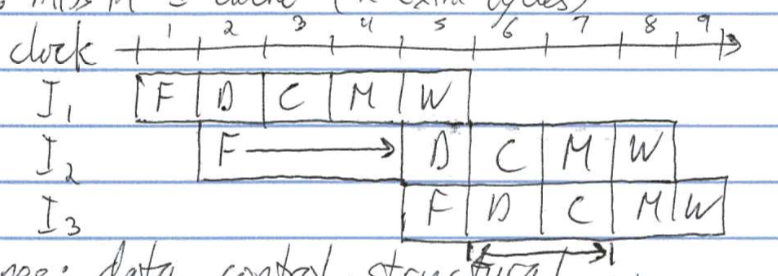 miss in I cache (2 extra cycles)
clock 1 2 3 4 5 6 7 8 9
I₁ F D C M W
I₂ F D C M W
I₃ F D C M W
data control structural